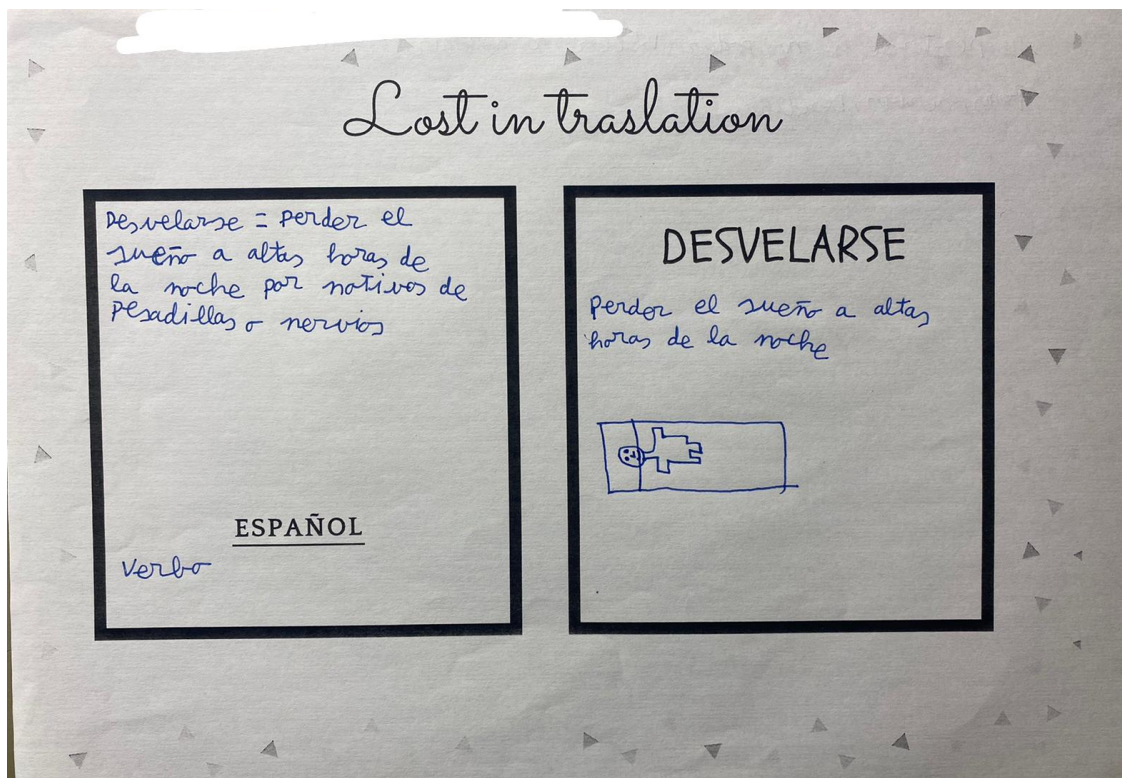 Lost in traslation
Desvelarse = Perder el
sueño a altas horas de
la noche por notivos de
Pesadillas o nervios
ESPAÑOL
Verbo
DESVELARSE
Perder el sueño a altas
horas de la noche